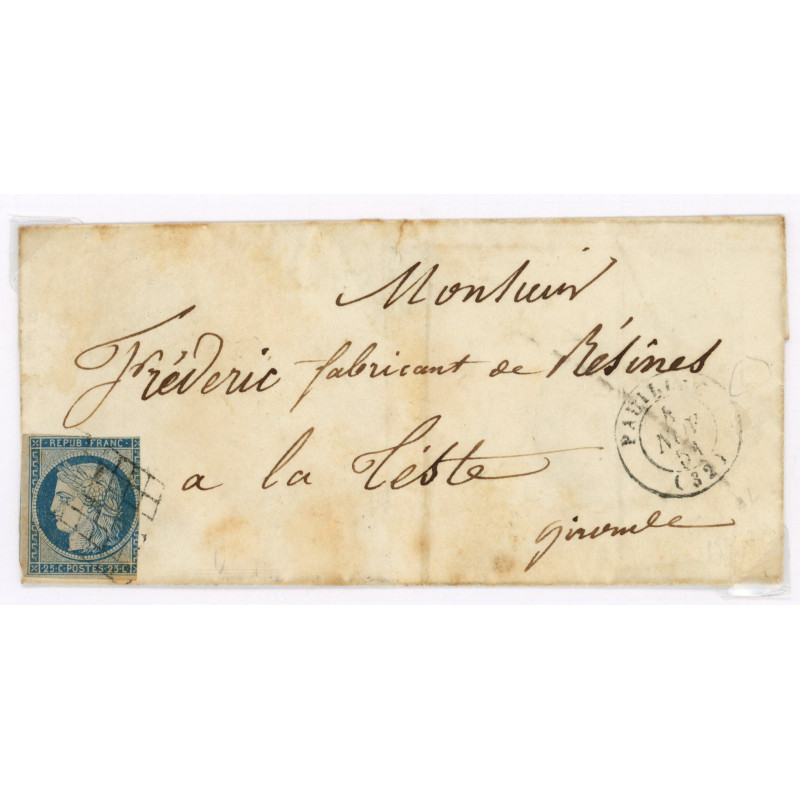 Monsieur
Fréderic fabricant de Résines
a la Téste
gironde
REPUB·FRANC·
25·C·POSTES·25·C
(32)